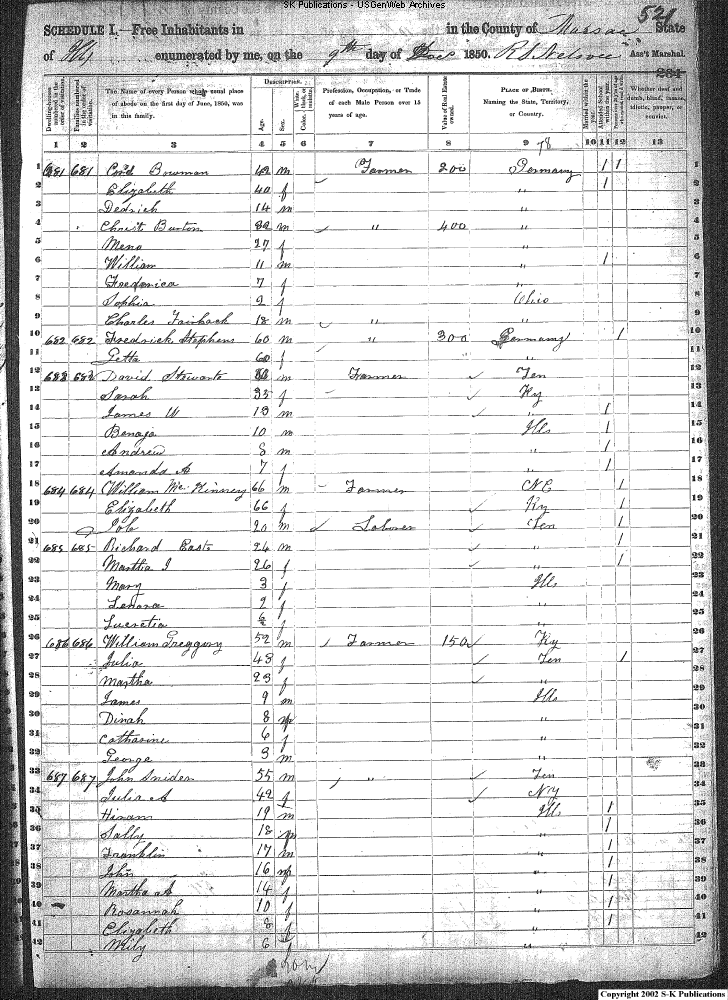 SK Publications - USGenWeb Archives
521
SCHEDULE I.—Free Inhabitants in in the County of Massac State
of Ills enumerated by me, on the 9th day of 1850. R. S. Nelson Ass't Marshal.
261
Dwelling-houses numbered in the order of visitation.
Families numbered in the order of visitation.
The Name of every Person whose usual place of abode on the first day of June, 1850, was in this family.
DESCRIPTION.
Age.
Sex.
Color, White, black, or mulatto.
Profession, Occupation, or Trade of each Male Person over 15 years of age.
Value of Real Estate owned.
PLACE OF BIRTH. Naming the State, Territory, or Country.
Married within the year.
Attended School within the year.
Whether deaf and dumb, blind, insane, idiotic, pauper, or convict.
1 2 3 4 5 6 7 8 9 10 11 12 13
1 681 681 Bowman 42 m Farmer 200 Germany 1 1 1
2 Elizabeth 40 f " 1 2
3 Dedrich 14 m " 3
4 Christ Burton m " 400 " 4
5 Mena 27 f " 5
6 William 11 m " 1 6
7 Fredenica 7 f " 7
8 Sophia 2 f Ohio 8
9 Charles Fairbach 18 m " " 9
10 682 682 Fredrick Stephens 60 m " 300 Germany 1 10
11 Getta 60 f " 11
12 683 683 David Stewarts m Farmer Ten 12
13 Sarah 35 f Ky 13
14 James W 13 m " 1 14
15 Benaja 10 m Ills 1 15
16 Andrew 8 m " 1 16
17 Amanda A 7 f " 1 17
18 684 684 William Mc Kinney 66 m Farmer NC 1 18
19 Elizabeth 66 f Ky 1 19
20 Job 20 m Laborer Ten 1 20
21 685 685 Richard Easts 24 m " 1 21
22 Martha J 26 f " 1 22
23 Mary 3 f Ills 23
24 Lenora 2 f " 24
25 Lucretia f " 25
26 686 686 William Greggory 52 m Farmer 150 Ky 26
27 Julia 43 f Ten 1 27
28 Martha 23 f " 28
29 James 9 m Ills 29
30 Dinah 8 " 30
31 Catharine 6 f " 31
32 George 3 m " 32
33 687 687 John Snider 55 m " Ten 33
34 Julia A 49 f NY 34
35 Hiram 19 m Ills 1 35
36 Sally 18 " 1 36
37 Franklin 17 m " 1 37
38 John 16 " 1 38
39 Martha A 14 f " 1 39
40 Rosannah 10 f " 1 40
41 Elizabeth 8 f " 1 41
42 Mily 6 f " 42
Copyright 2002 S-K Publications